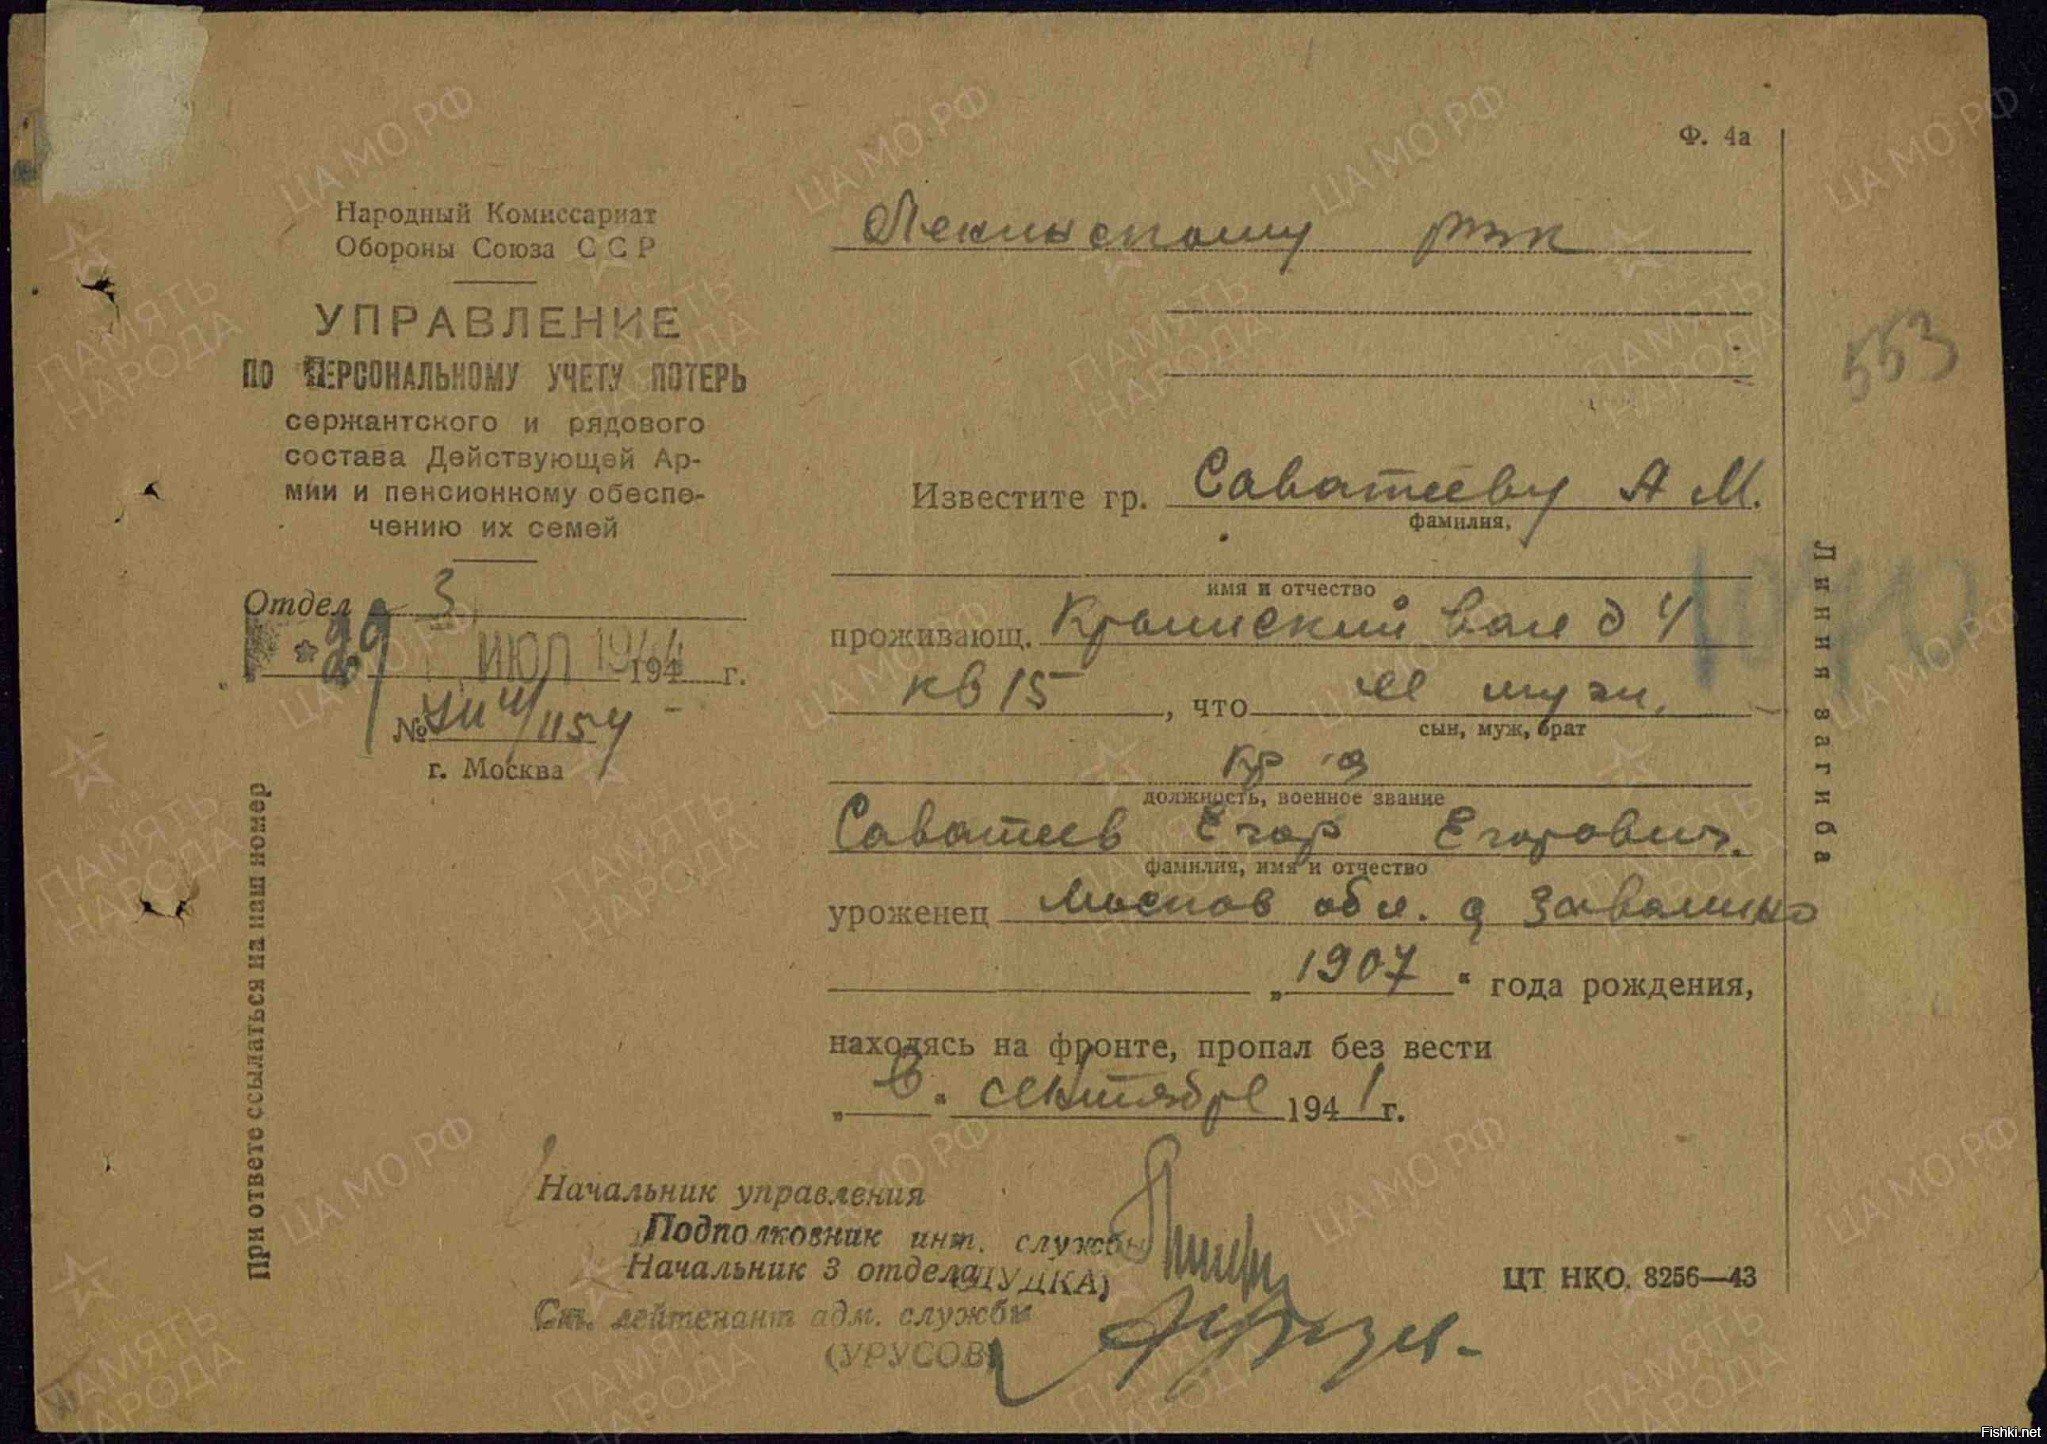 Ф. 4а
Народный Комиссариат
Обороны Союза ССР
УПРАВЛЕНИЕ
ПО ПЕРСОНАЛЬНОМУ УЧЕТУ ПОТЕРЬ
сержантского и рядового
состава Действующей Ар-
мии и пенсионному обеспе-
чению их семей
Отдел 3
29 ИЮЛ 1944 194 г.
№ 1154
г. Москва
При ответе ссылаться на наш номер
Ленинскому рвк
Известите гр. Саватееву А М.
фамилия,
имя и отчество
проживающ. Крымский вал д 4
кв 15, что её муж,
сын, муж, брат
кр-ц
должность, военное звание
Саватеев Егор Егорович.
фамилия, имя и отчество
уроженец Москов обл. д
„1907" года рождения,
находясь на фронте, пропал без вести
„в" сентябре 1941 г.
Начальник управления
Подполковник инт. службы
(ДУДКА)
Начальник 3 отдела
Ст. лейтенант адм. службы
(УРУСОВ)
ЦТ НКО. 8256—43
553
Линия загиба
ЦА МО РФ
ПАМЯТЬ НАРОДА
Fishki.net